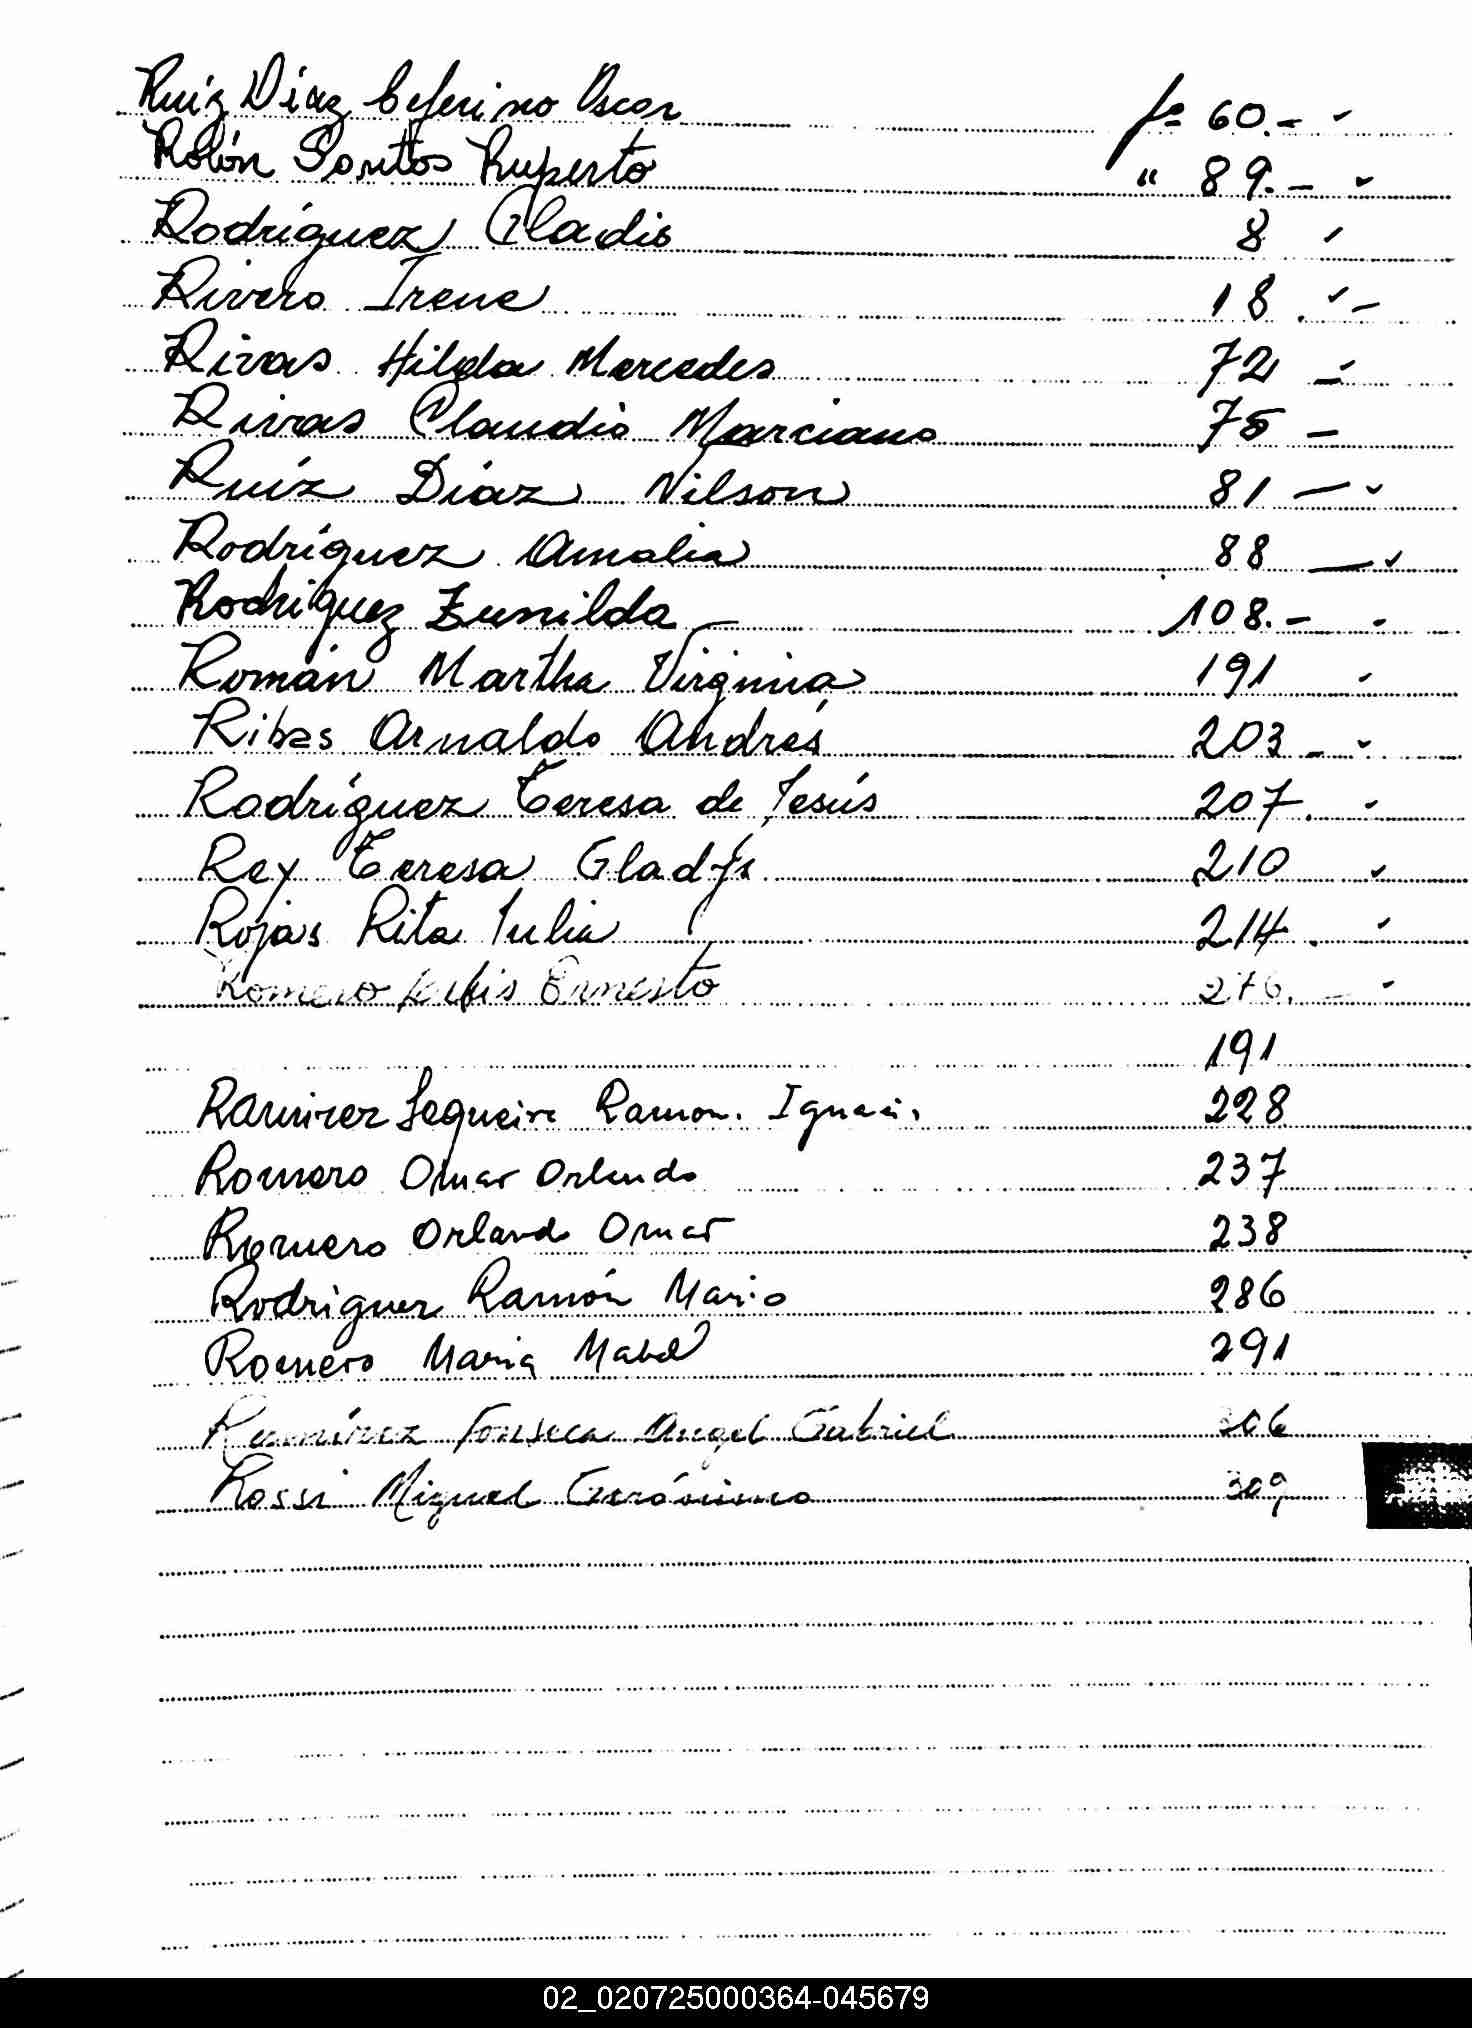 Ruíz Díaz Ceferino Oscar fº 60.-
Rolón Santos Ruperto " 89.-
Rodríguez Gladis 8
Rivero Irene 18
Rivas Hilda Mercedes 72 -
Rivas Claudio Marciano 75 -
Ruíz Díaz Nilson 81 -
Rodríguez Amalia 88 -
Rodriguez Zunilda 108.-
Román Martha Virginia 191
Ribas Arnaldo Andrés 203 -
Rodríguez Teresa de Jesús 207.
Rey Teresa Gladys 210
Rojas Rita Julia 214.
Romero Luis Ernesto 276. -
191
Ramirez Sequeira Ramon Ignacio 228
Romero Omar Orlando 237
Romero Orlando Omar 238
Rodriguez Ramón Mario 286
Romero Maria Mabel 291
Ramírez Fonseca Angel Gabriel 306
Rossi Miguel Gerónimo 309
02_020725000364-045679